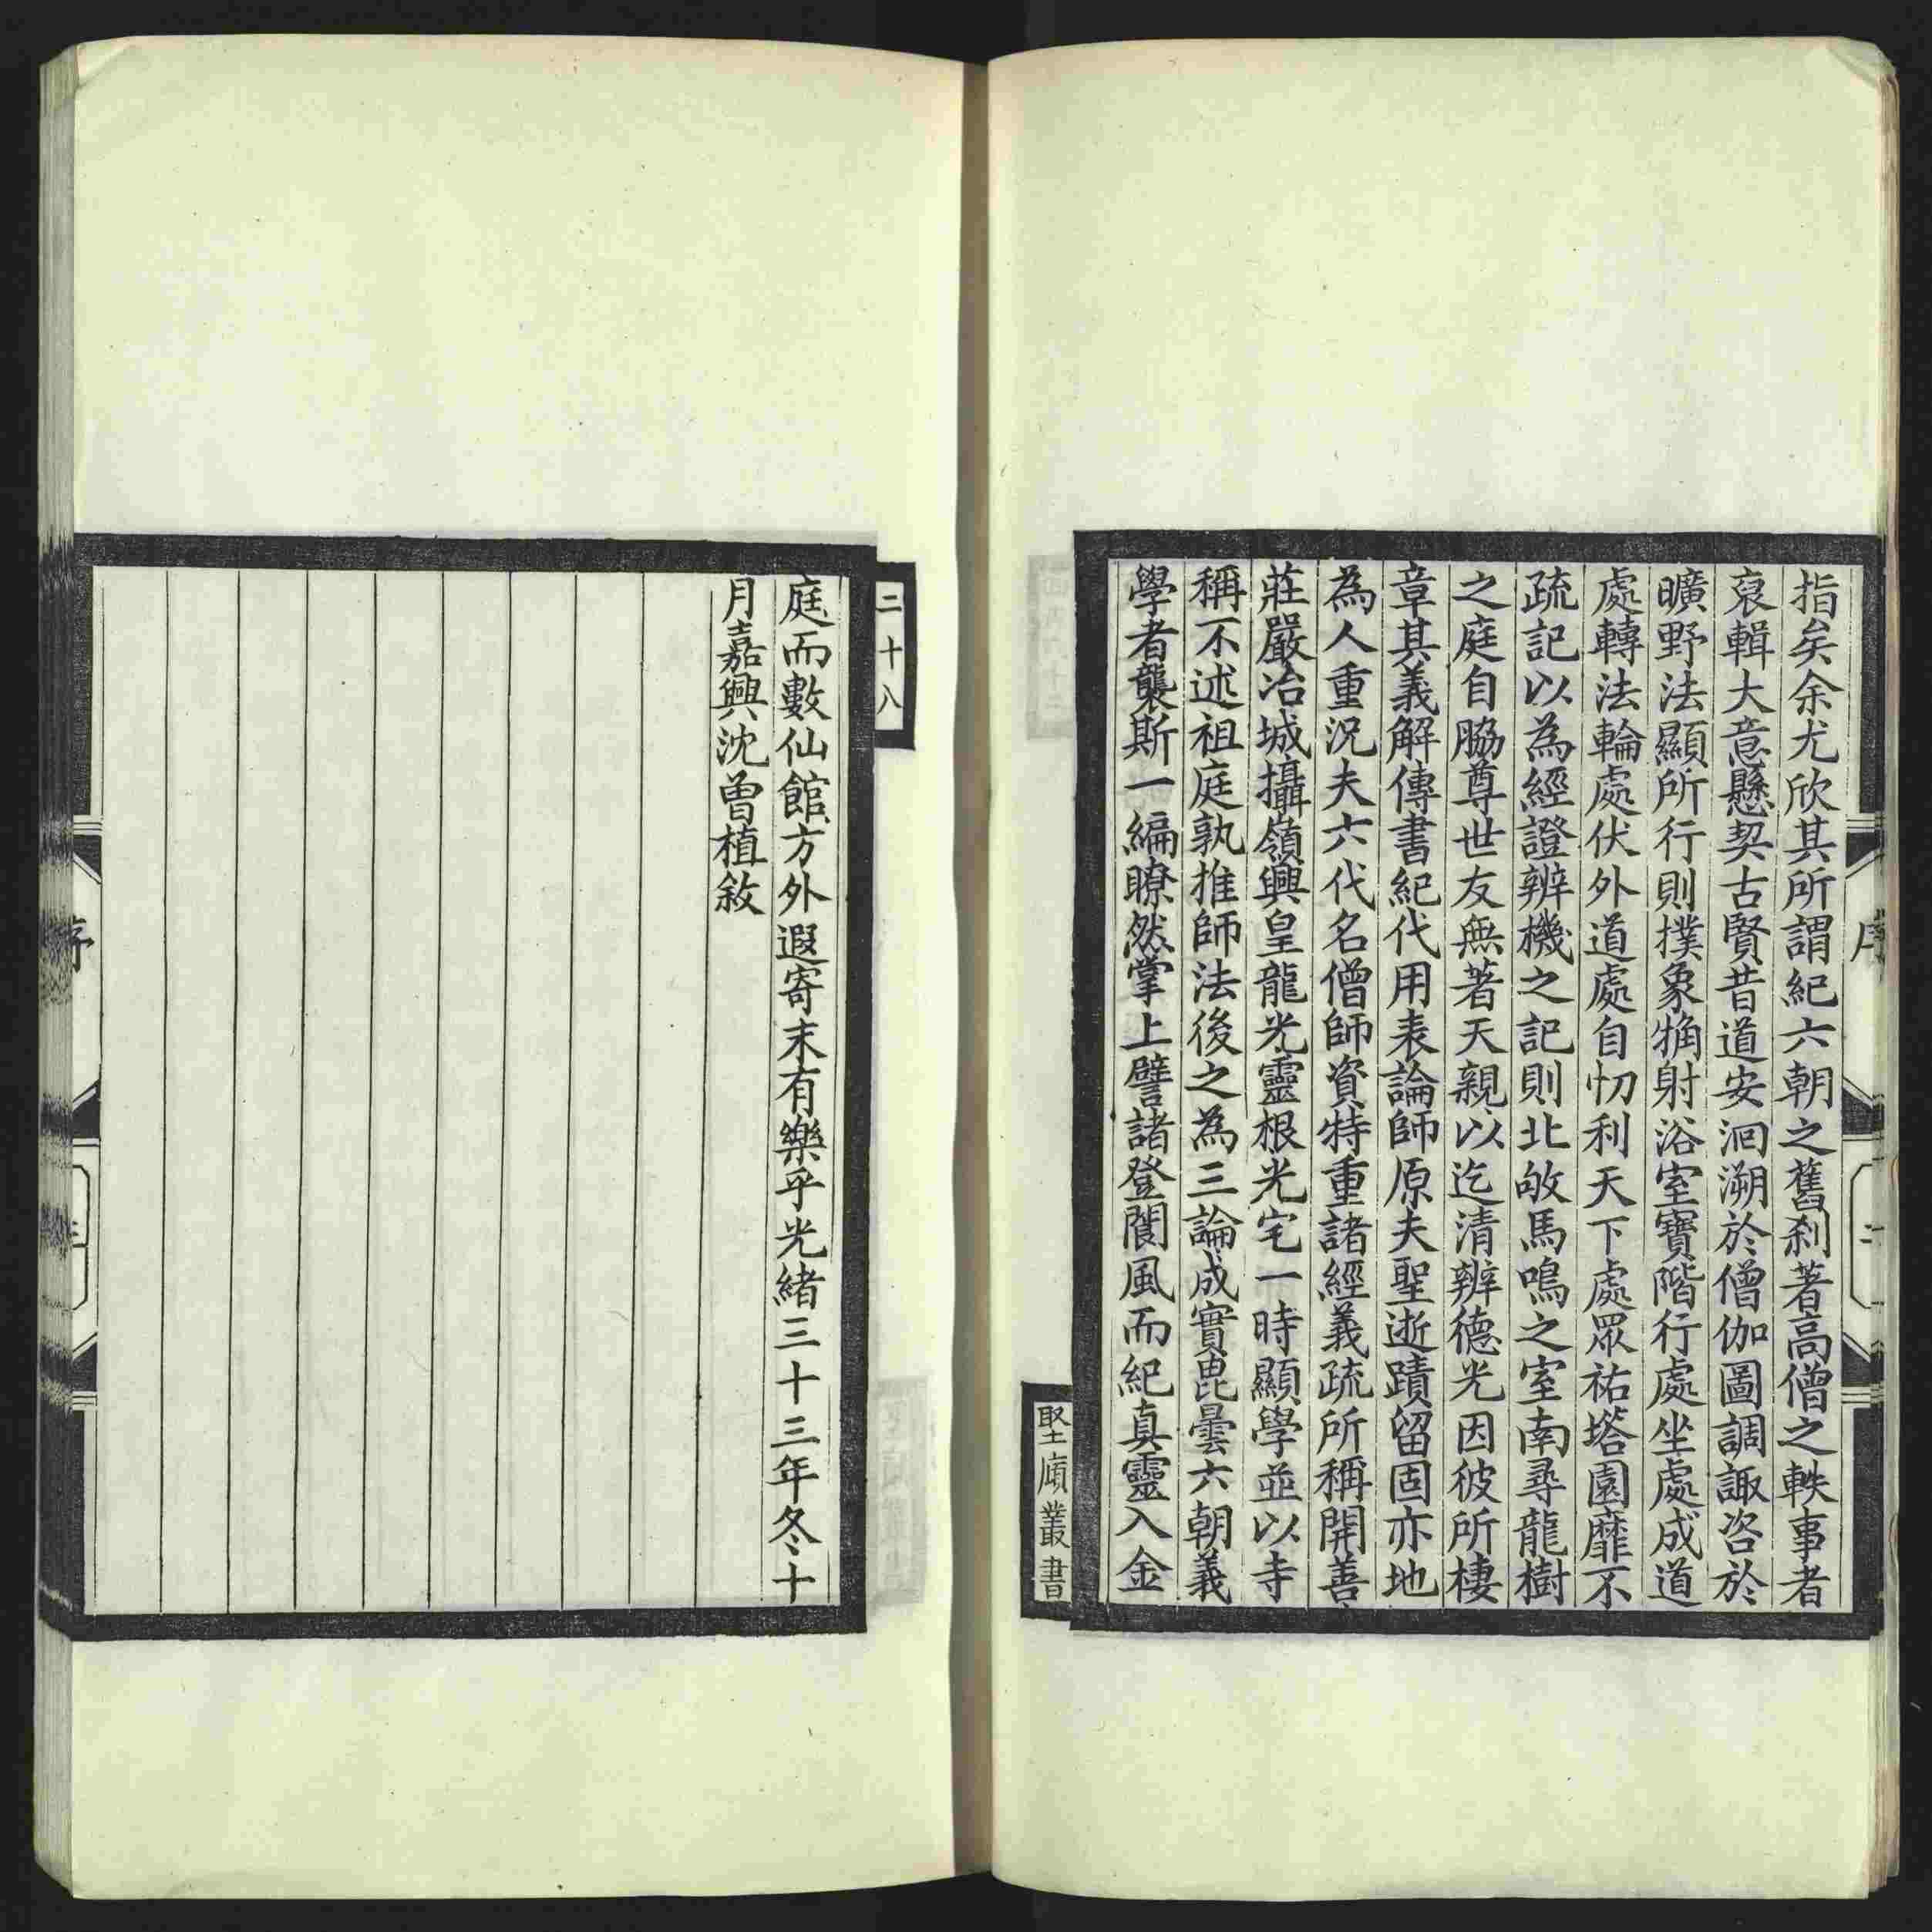 指矣余尤欣其所謂紀六朝之舊刹著高僧之軼事者
裒輯大意懸契古賢昔道安洄溯於僧伽圖調諏咨於
曠野法顯所行則撲象犄射浴室寶階行處坐處成道
處轉法輪處伏外道處自忉利天下處眾祐塔園靡不
疏記以為經證辨機之記則北敂馬鳴之室南尋龍樹
之庭自脇尊世友無著天親以迄清辨德光因彼所棲
章其義解傳書紀代用表論師原夫聖逝蹟留固亦地
為人重況夫六代名僧師資特重諸經義疏所稱開善
莊嚴冶城攝嶺興皇龍光靈根光宅一時顯學並以寺
稱不述祖庭孰推師法後之為三論成實毘曇六朝義
學者襲斯一編瞭然掌上譬諸登閬風而紀真靈入金
堅廎叢書
序
二
二十八
庭而數仙館方外遐寄末有樂乎光緒三十三年冬十
月嘉興沈曾植敘
序